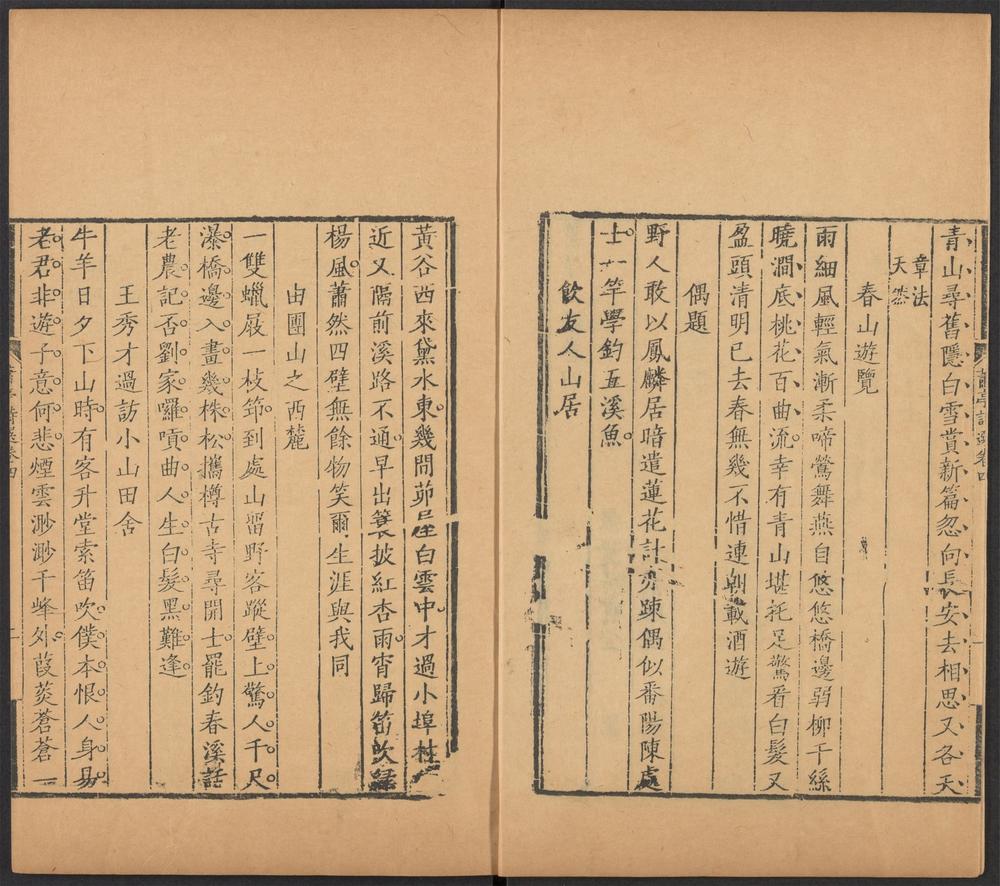 青山尋舊隱白雪賞新篇忽向長安去相思又各天
章法
天然
春山遊覽
雨細風輕氣漸柔啼鶯舞燕自悠悠橋邊弱柳千絲
曉澗底桃花百曲流幸有青山堪托足驚看白髮又
盈頭清明已去春無幾不惜連朝載酒遊
偶題
野人敢以鳳麟居暗遣蓮花計亦踈偶似番陽陳處
士一竿學釣五溪魚
飲友人山居
黃谷西來黛水東幾間茆屋白雲中才過小埠村
近又隔前溪路不通早出簑披紅杏雨宵歸笛吹綠
楊風蕭然四壁無餘物笑爾生涯與我同
由團山之西麓
一雙蠟屐一枝笻到處山畱野客蹤壁上驚人千尺
瀑橋邊入畫幾株松攜樽古寺尋開士罷釣春溪話
老農記否劉家囉嗊曲人生白髮黑難逢
王秀才過訪小山田舍
牛羊日夕下山時有客升堂索笛吹僕本恨人身易
老君非遊子意何悲煙雲渺渺千峰外葭菼蒼蒼一